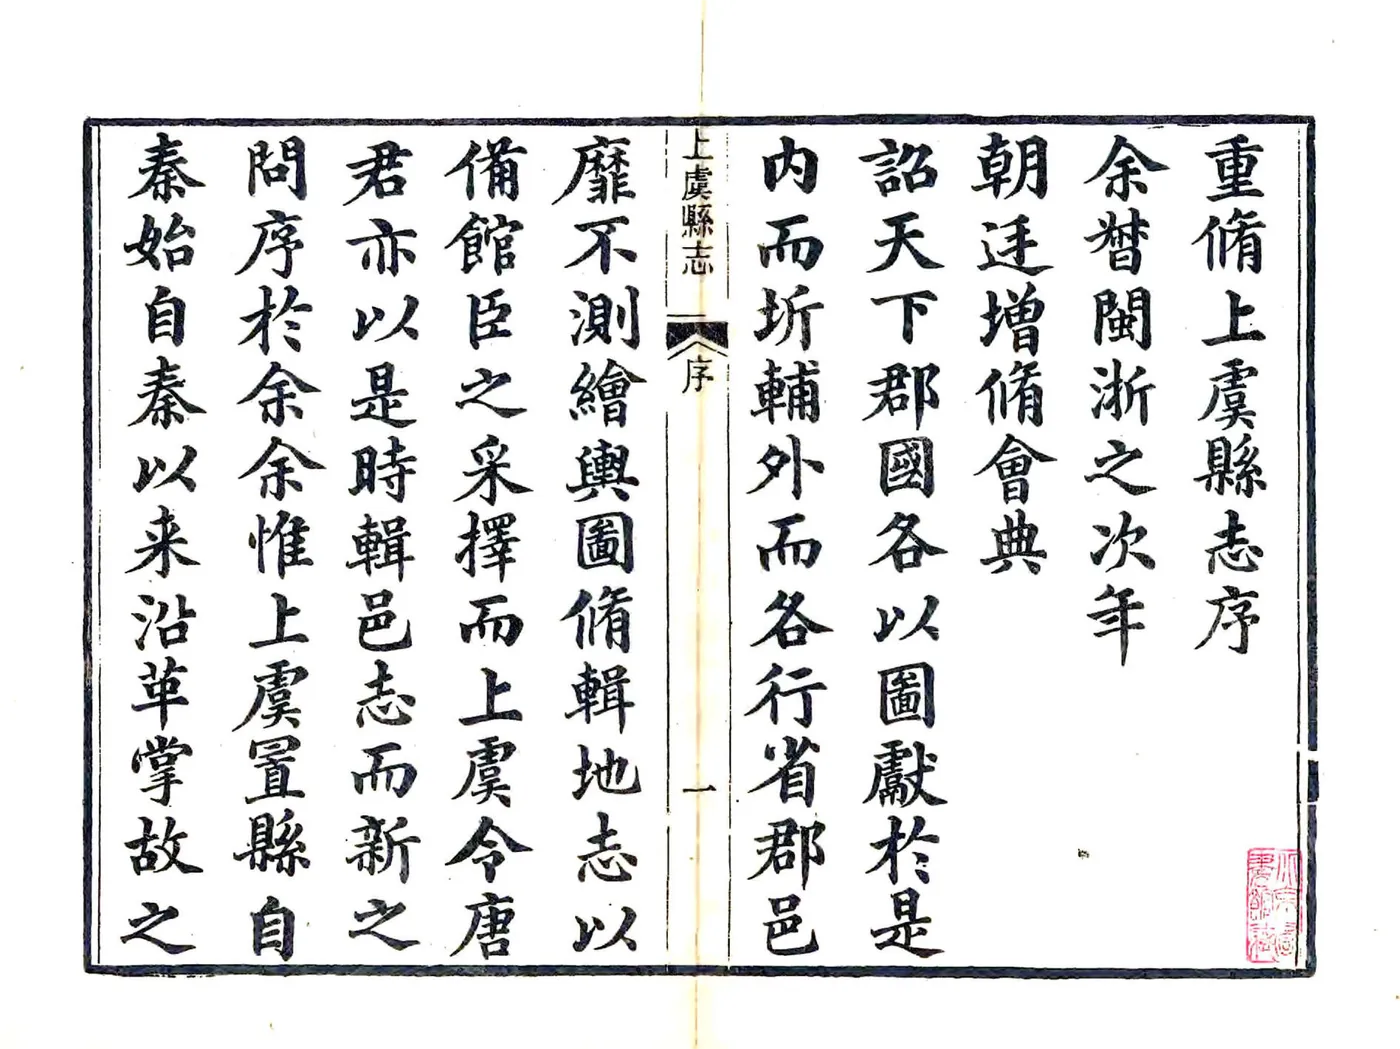 重脩上虞縣志序
余督閩浙之次年
朝廷增脩會典
詔天下郡國各以圖獻於是
内而圻輔外而各行省郡邑
上虞縣志
序
一
靡不測繪輿圖脩輯地志以
備館臣之采擇而上虞令唐
君亦以是時輯邑志而新之
問序於余余惟上虞置縣自
秦始自秦以来沿革掌故之